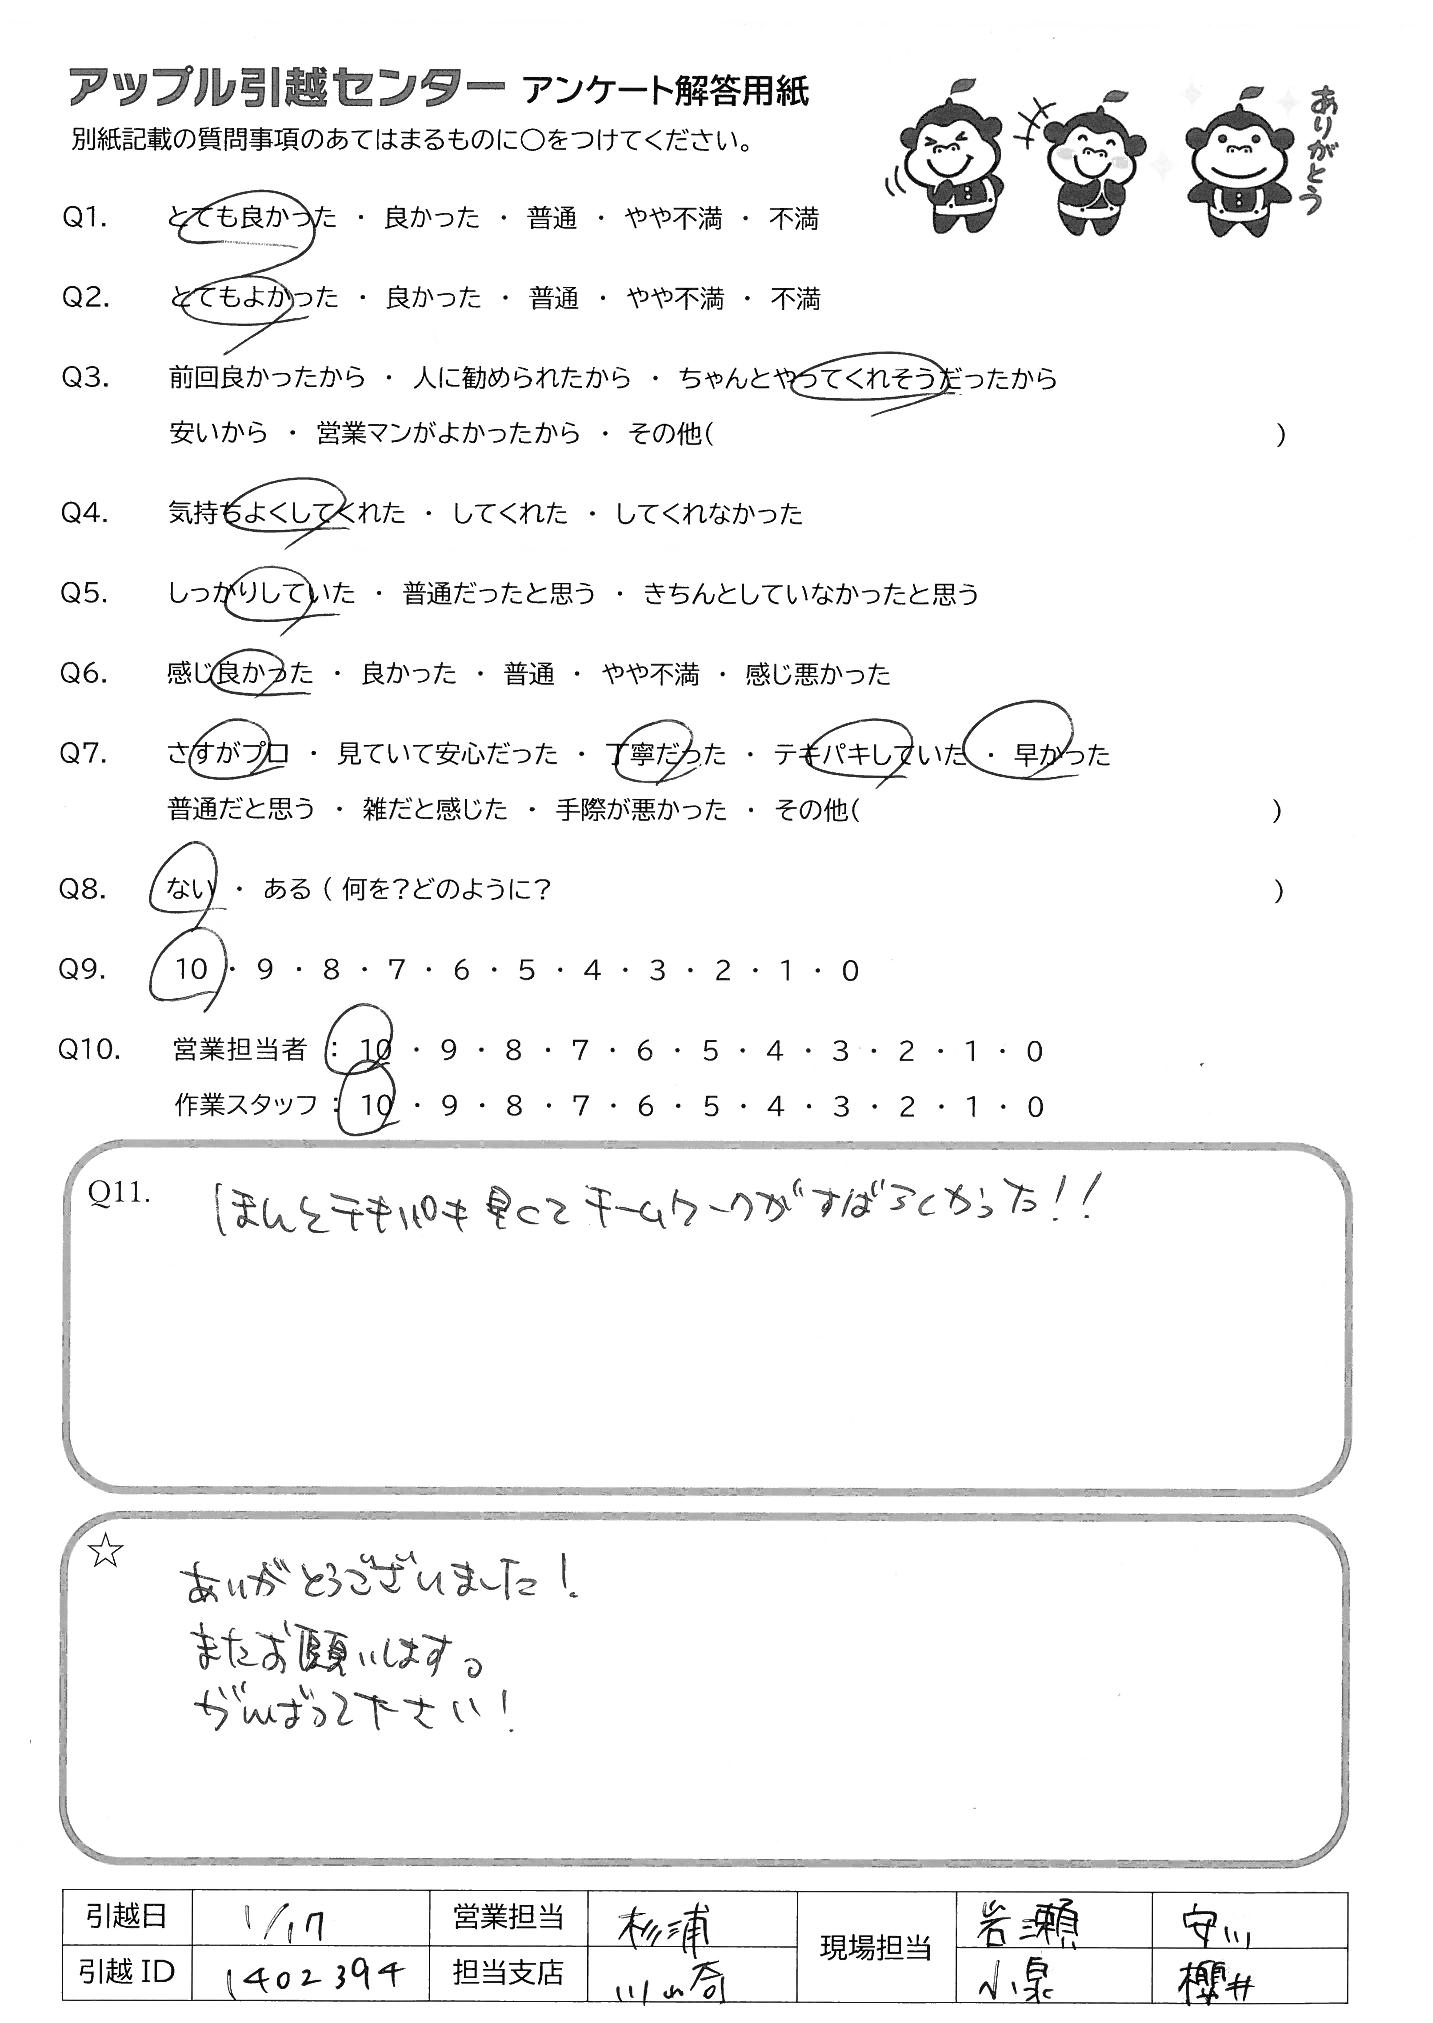 アップル引越センター アンケート解答用紙
別紙記載の質問事項のあてはまるものに○をつけてください。
ありがとう
Q1. とても良かった ・ 良かった ・ 普通 ・ やや不満 ・ 不満
Q2. とてもよかった ・ 良かった ・ 普通 ・ やや不満 ・ 不満
Q3. 前回良かったから ・ 人に勧められたから ・ ちゃんとやってくれそうだったから
安いから ・ 営業マンがよかったから ・ その他( )
Q4. 気持ちよくしてくれた ・ してくれた ・ してくれなかった
Q5. しっかりしていた ・ 普通だったと思う ・ きちんとしていなかったと思う
Q6. 感じ良かった ・ 良かった ・ 普通 ・ やや不満 ・ 感じ悪かった
Q7. さすがプロ ・ 見ていて安心だった ・ 丁寧だった ・ テキパキしていた ・ 早かった
普通だと思う ・ 雑だと感じた ・ 手際が悪かった ・ その他( )
Q8. ない ・ ある ( 何を?どのように? )
Q9. 10 ・ 9 ・ 8 ・ 7 ・ 6 ・ 5 ・ 4 ・ 3 ・ 2 ・ 1 ・ 0
Q10. 営業担当者 : 10 ・ 9 ・ 8 ・ 7 ・ 6 ・ 5 ・ 4 ・ 3 ・ 2 ・ 1 ・ 0
作業スタッフ : 10 ・ 9 ・ 8 ・ 7 ・ 6 ・ 5 ・ 4 ・ 3 ・ 2 ・ 1 ・ 0
Q11. ほんとテキパキ早くてチームワークがすばらしかった!!
☆ ありがとうございました!
またお願いします。
がんばって下さい!
引越日 1/17 営業担当 杉浦 現場担当 岩瀬 安川
引越ID 1402394 担当支店 川崎 小泉 櫻井